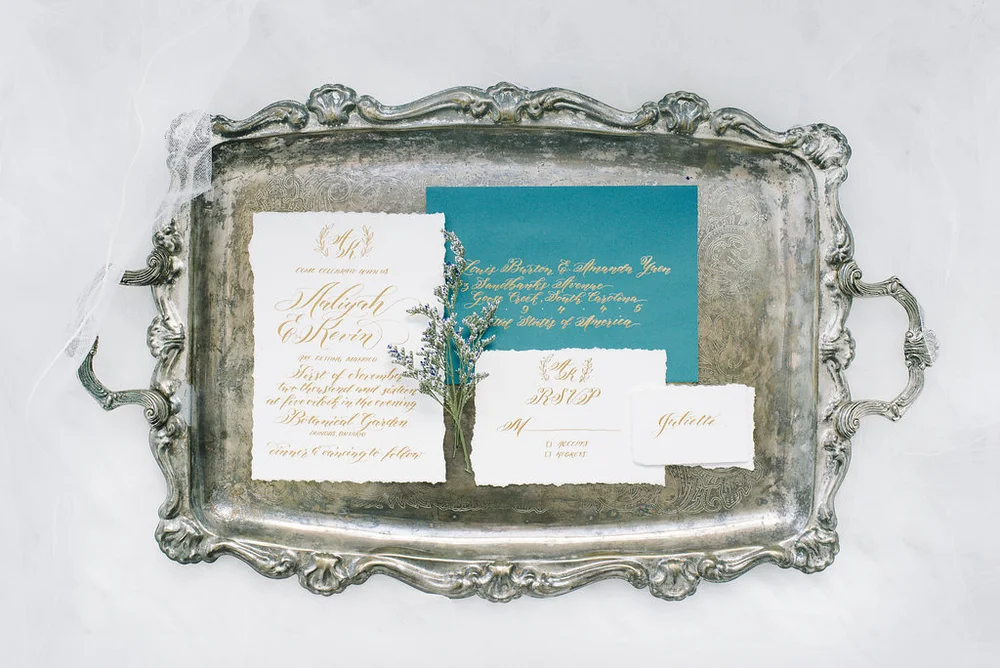 AK
COME CELEBRATE WITH US
Aaliyah
& Kevin
ARE GETTING MARRIED
First of November
two thousand and sixteen
at five o'clock in the evening
Botanical Garden
DUNDAS, ONTARIO
dinner & dancing to follow
Lewis Burton & Amanda Yuen
Sandbanks Avenue
Goose Creek, South Carolina
9 4 4 5
States of America
AK
RSVP
M
ACCEPTS
REGRETS
Juliette